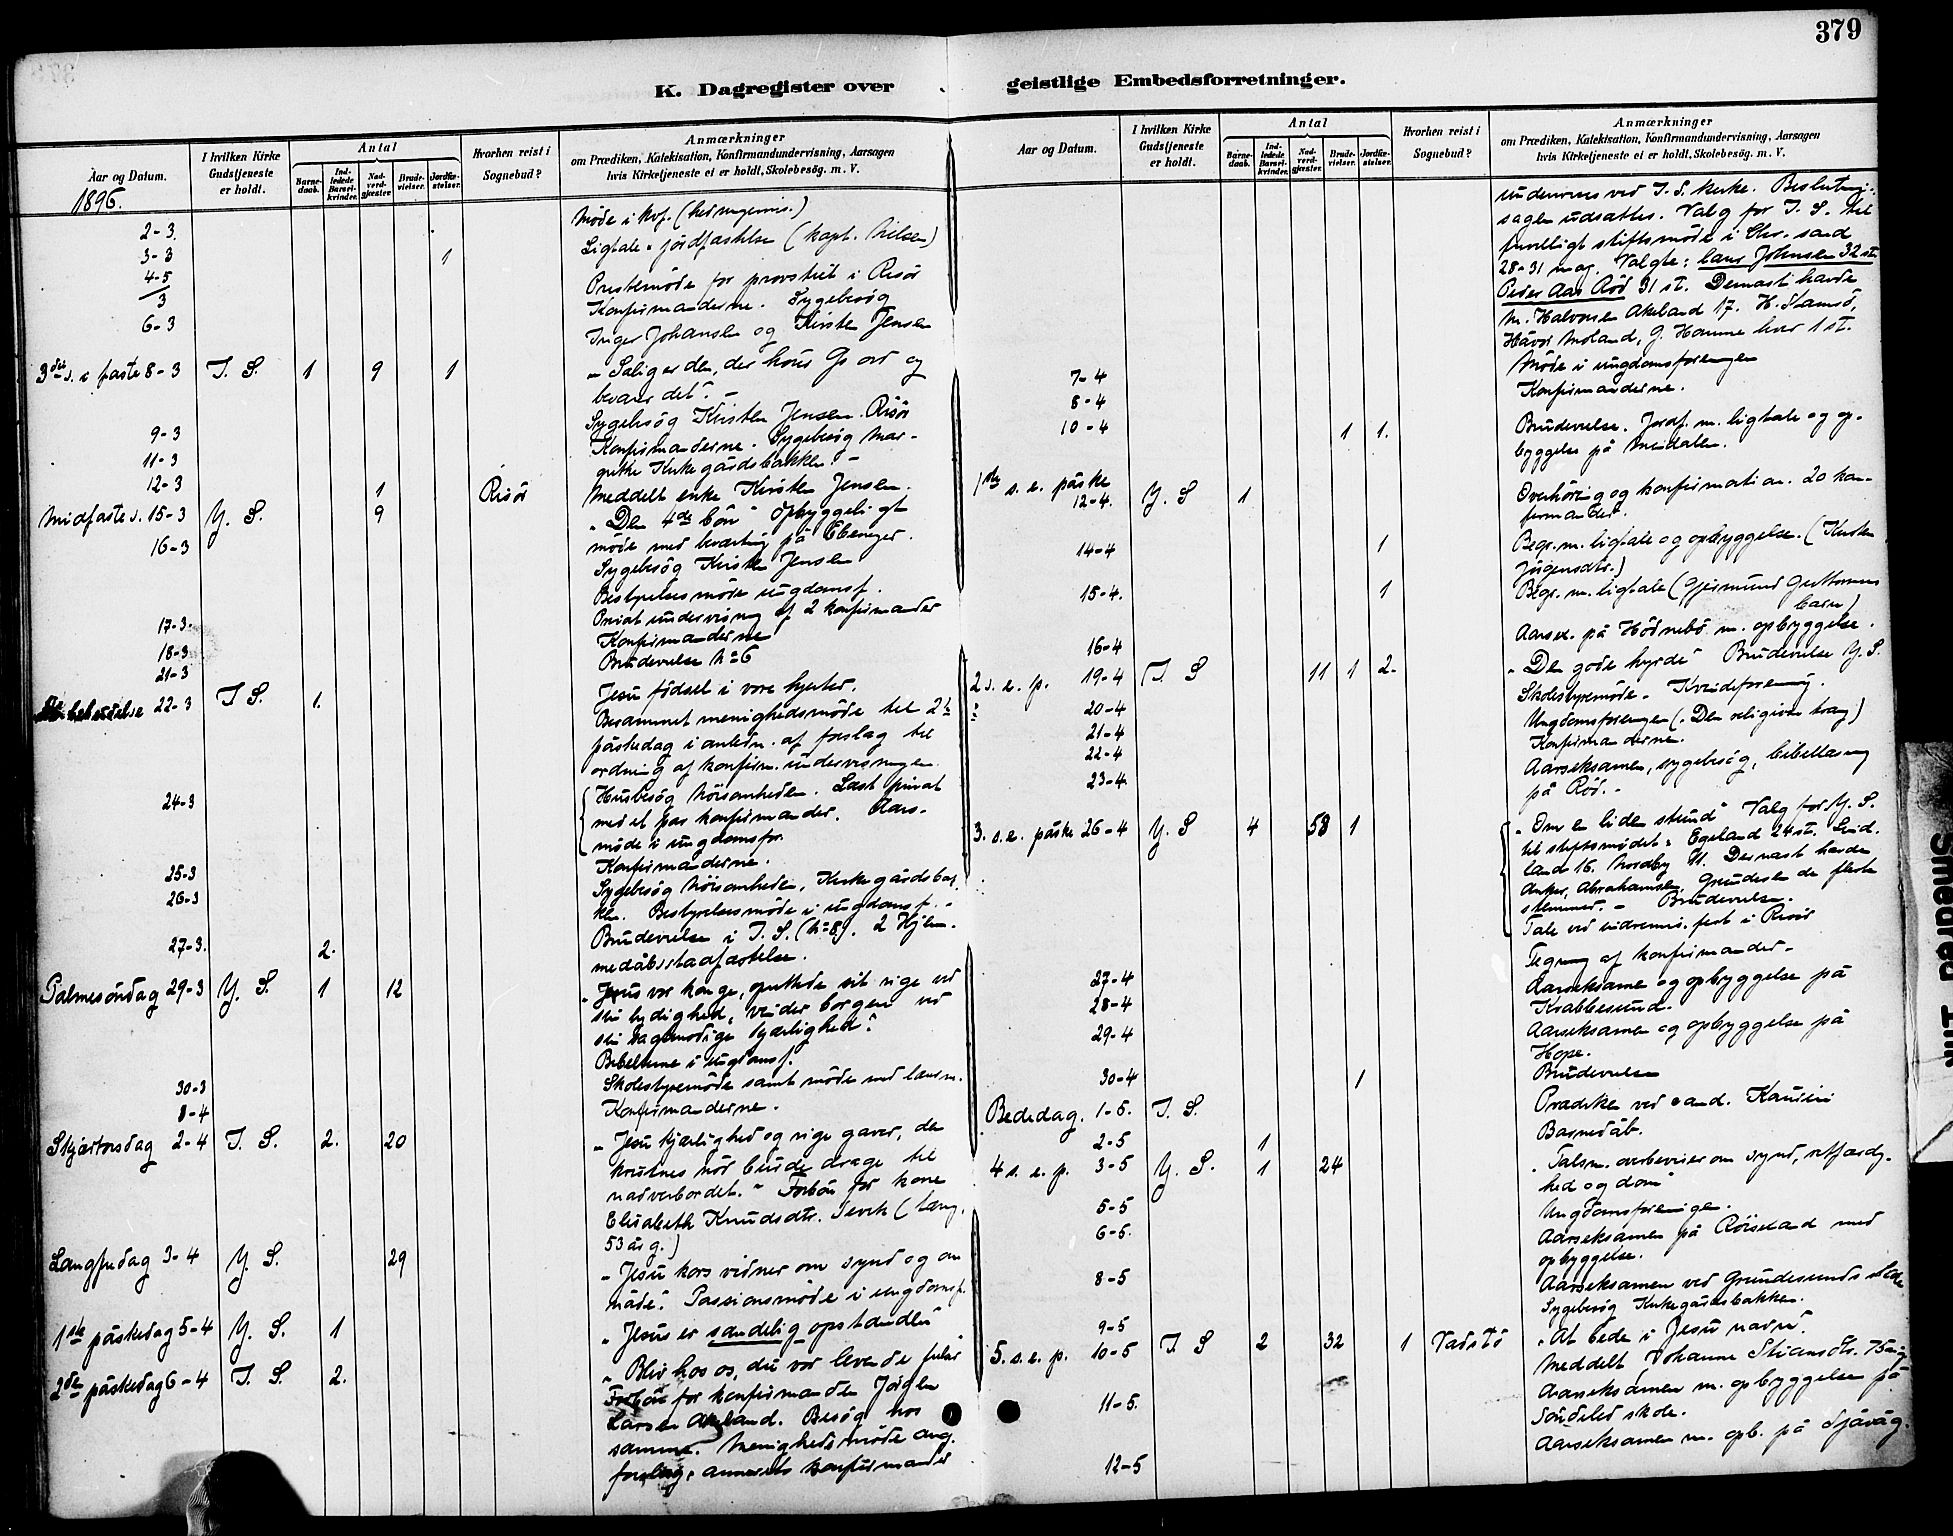 379
K. Dagregister over geistlige Embedsforretninger.
Aar og Datum.
I hvilken Kirke Gudstjeneste er holdt.
Antal
Barnedaab.
Indledede Barselkvinder.
Nadverdgjester.
Brudevielser.
Jordfæstelser.
Hvorhen reist i Sognebud?
Anmærkninger
om Prædiken, Katekisation, Konfirmandundervisning, Aarsagen
hvis Kirketjeneste ei er holdt, Skolebesøg. m. V.
1896.
2-3. Møde i
3-3 1 Ligtale jordfæstelse (kapt. Nilsen)
4-5/3 Prestemøde for provstiet i Risør
Konfirmanderne. Sygebesøg
6-3 Inger Johansen og Kirsten Jensen
3die s. i faste 8-3 I. S. 1 9 1 "Salig er den, der hører Gs ord og
bevarer det". -
9-3 Sygebesøg Kirsten Jensen. Risør
11-3 Konfirmanderne. Sygebesøg Mar-
grethe Kirkegårdsbakken. -
12-3 1 Risør Meddelt enke Kirsten Jensen.
Midfastes. 15-3 Y. S. 9 "Den 4de bøn" Opbyggeligt
møde med beværtning på Ebeneser.
16-3 Sygebesøg Kirsten Jensen
Bestyrelsesmøde ungdomsf.
17-3. Privat undervisning af 2 konfirmander
18-3 Konfirmanderne
21-3 Brudevielse No 6
22-3 I S. 1. Jesu fødsel i vore hjerter.
Berammet menighedsmøde til 2den
påskedag i anledn. af forslag til
ordning af konfirm. undervisningen
24-3 Husbesøg Nøisomheden. Læst privat
med et par konfirmander. Aars-
møde i ungdomsfor.
25-3 Konfirmanderne.
26-3 Sygebesøg Nøisomheden, Kirkegårdsbak-
ken. Bestyrelsesmøde i ungdomsf. -
27-3. 2. Brudevielse i I. S. (No 8). 2 Hjem-
medåbsstadfæstelse.
Palmesøndag 29-3 Y. S. 1 12 "Jesus vor konge, oprettede sit rige ved
sin lydighed, vinder borgere ved
sin sagtmodige kjærlighed".
Bibeltime i ungdomsf.
30-3 Skolestyremøde samt møde med lærern.
8-4 Konfirmanderne.
Skjærtorsdag 2-4 I. S. 2. 20 "Jesu kjærlighed og rige gaver, der
kristnes nød burde drage til
nadverbordet." Forbøn for kone
Elisabeth Knudsdtr. Sevik (tæring,
53 år g.)
Langfredag 3-4 Y. S. 29 "Jesu kors vidner om synd og om
nåde". Passionsmøde i ungdomsf.
1ste påskedag 5-4 Y. S. 1 "Jesus er sandelig opstanden"
2den påskedag 6-4 I. S. 2. "Bliv hos os, du vor levende frelser"
Forbøn for konfirmanden Jørgen
Larsen Akeland. Besøg hos
samme. Menighedsmøde ang.
forslag, annerets konfirmander
undervises ved I. S. kirke. Beslutning:
sagen udsættes. Valg for I. S. til
frivilligt stiftsmøde i Chr.sand
28-31 maj. Valgte: Lars Johnsen 32 st.
Peder Aas Rød 31 st. Dernæst havde
M. Halvorsen Akeland 17. H. Stamsø,
Håvor Moland, G. Homme hver 1 st.
7-4 Møde i ungdomsforeningen
8-4 Konfirmanderne.
10-4 1 1. Brudevielse. Jordf. m. ligtale og op-
byggelse på Mindalen.
1ste s. e. påske
12-4. Y. S 1 Overhøring og konfirmation. 20 kon-
firmander.
14-4 1 Begr. m. ligtale og opbyggelse. (Kirsten
Jørgensdtr.)
15-4. 1 Begr. m. ligtale (Gjermund Guttormsens
barn)
16-4 Aarsex. på Hødnebø m. opbyggelse.
2 s. e. p. 19-4 I. S 11 1 2. "Den gode hyrde" Brudevielse Y. S.
20-4 Skolestyremøde. Kvindeforening.
21-4 Ungdomsforeningen ("Den religiøse trang")
22-4 Konfirmanderne.
23-4 Aarseksamen, sygebesøg, bibellæsning
på Rød. -
3. s. e. påske 26-4 Y. S 4 58 1 "Om en liden stund" Valg for Y. S.
til stiftsmødet: Egeland 24 st. Lind-
land 16. Nordby 11. Dernæst havde
Anker, Abrahamsen, Grundesen de fleste
stemmer. - Brudevielse.
Tale ved indremis. fest i Risør
27-4 Tegning af konfirmander.
28-4 Aarseksamen og opbyggelse på
Krabbesund.
29-4 Aarseksamen og opbyggelse på
Hope.
30-4 1 Brudevielse
Bededag. 1-5. I. S. Prædiken ved cand. Kaurin
2-5 1 Barnedåb.
4 s. e. p. 3-5 Y. S. 1 24 "Talsm. overbeviser om synd, retfærdig-
hed og dom"
5-5 Ungdomsforeningen.
6-5. Aarseksamen på Røiseland med
opbyggelse.
8-5 Aarseksamen ved Grundesunds skole
9-5 Sygebesøg Kirkegårdsbakken.
5. s. e. p. 10-5 I. S 2 32 1 Vadstø "At bede i Jesu navn".
Meddelt Johanne Stiansdtr. 75 år g.
11-5. Aarseksamen m. opbyggelse på
Søndeled skole.
12-5 Aarseksamen m. opb. på Sjåvåg.